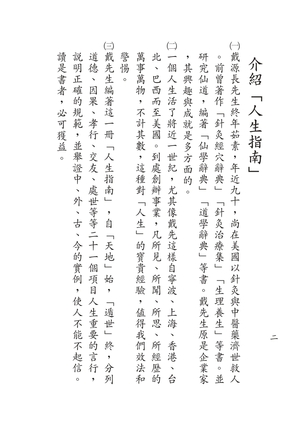 介紹「人生指南」
㈠戴源長先生終年茹素，年近九十，尚在美國以針灸與中醫藥濟世救人
。前曾著作「針灸經穴辭典」「針灸治療集」「生理養生」等書。並
研究仙道，編著「仙學辭典」「道學辭典」等書。戴先生原是企業家
，其興趣與成就是多方面的。
㈡一個人生活了將近一世紀，尤其像戴先這樣自寧波、上海、香港、台
北、巴西而至美國。到處創辦事業，凡所見、所聞、所思、所經歷的
萬事萬物，不計其數，這種對「人生」的寶貴經驗，值得我們效法和
警惕。
㈢戴先生編著這一冊「人生指南」，自「天地」始，「遁世」終，分列
道德、因果、孝行、交友、處世等等二十一個項目人生重要的言行，
說明正確的規範，並舉證中、外、古、今的實例，使人不能不起信。
讀是書者，必可獲益。
二